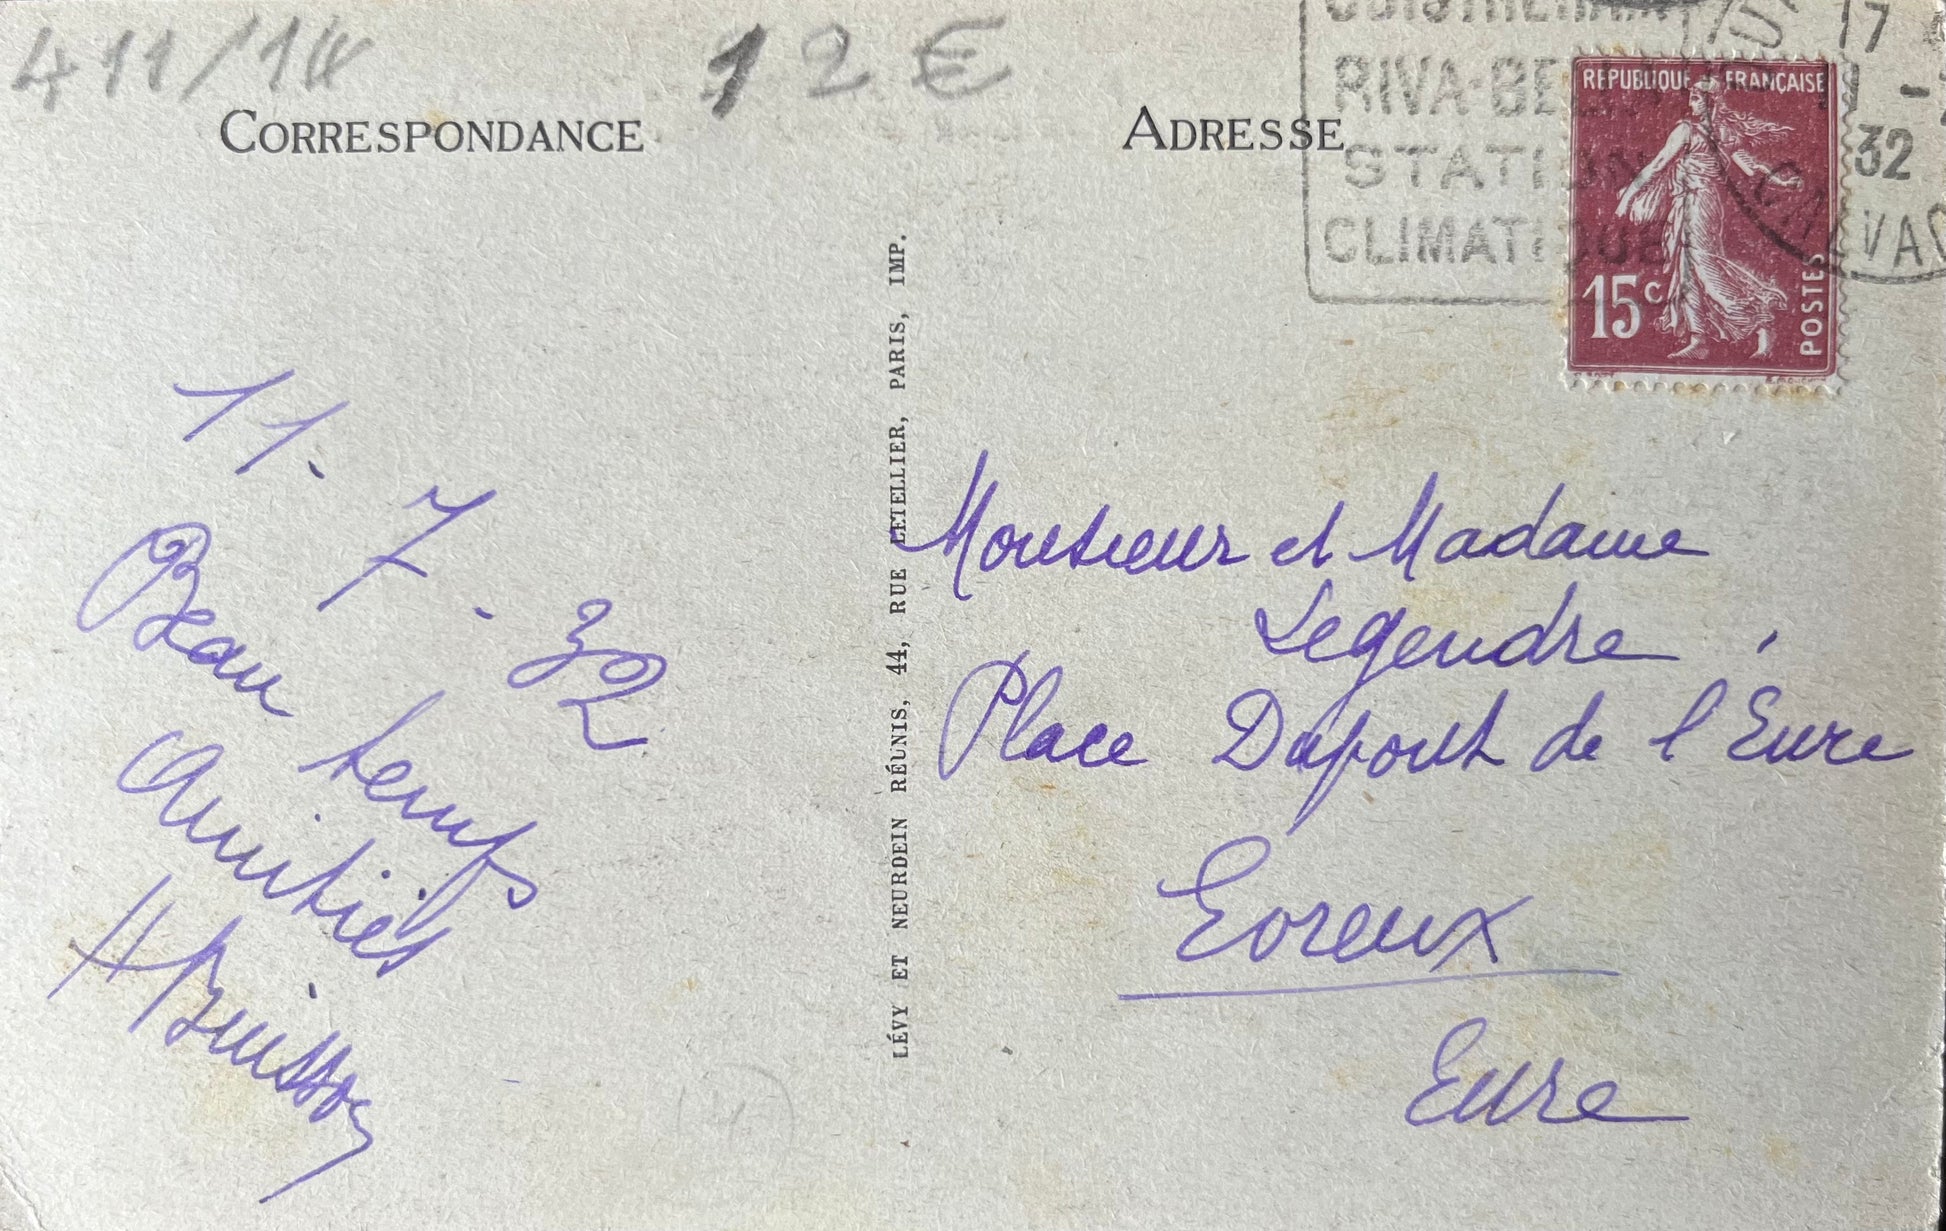 411/18
12€
CORRESPONDANCE
ADRESSE
OUISTREHAM
RIVA-BELLA
STATION
CLIMATIQUE
17
32
CALVAD
REPUBLIQUE FRANÇAISE
15c
POSTES
11.7.32
Beau temps
Amitiés
HBuisson
LÉVY ET NEURDEIN RÉUNIS, 44, RUE LETELLIER, PARIS, IMP.
Monsieur et Madame
Legendre
Place Dupont de l'Eure
Evreux
Eure